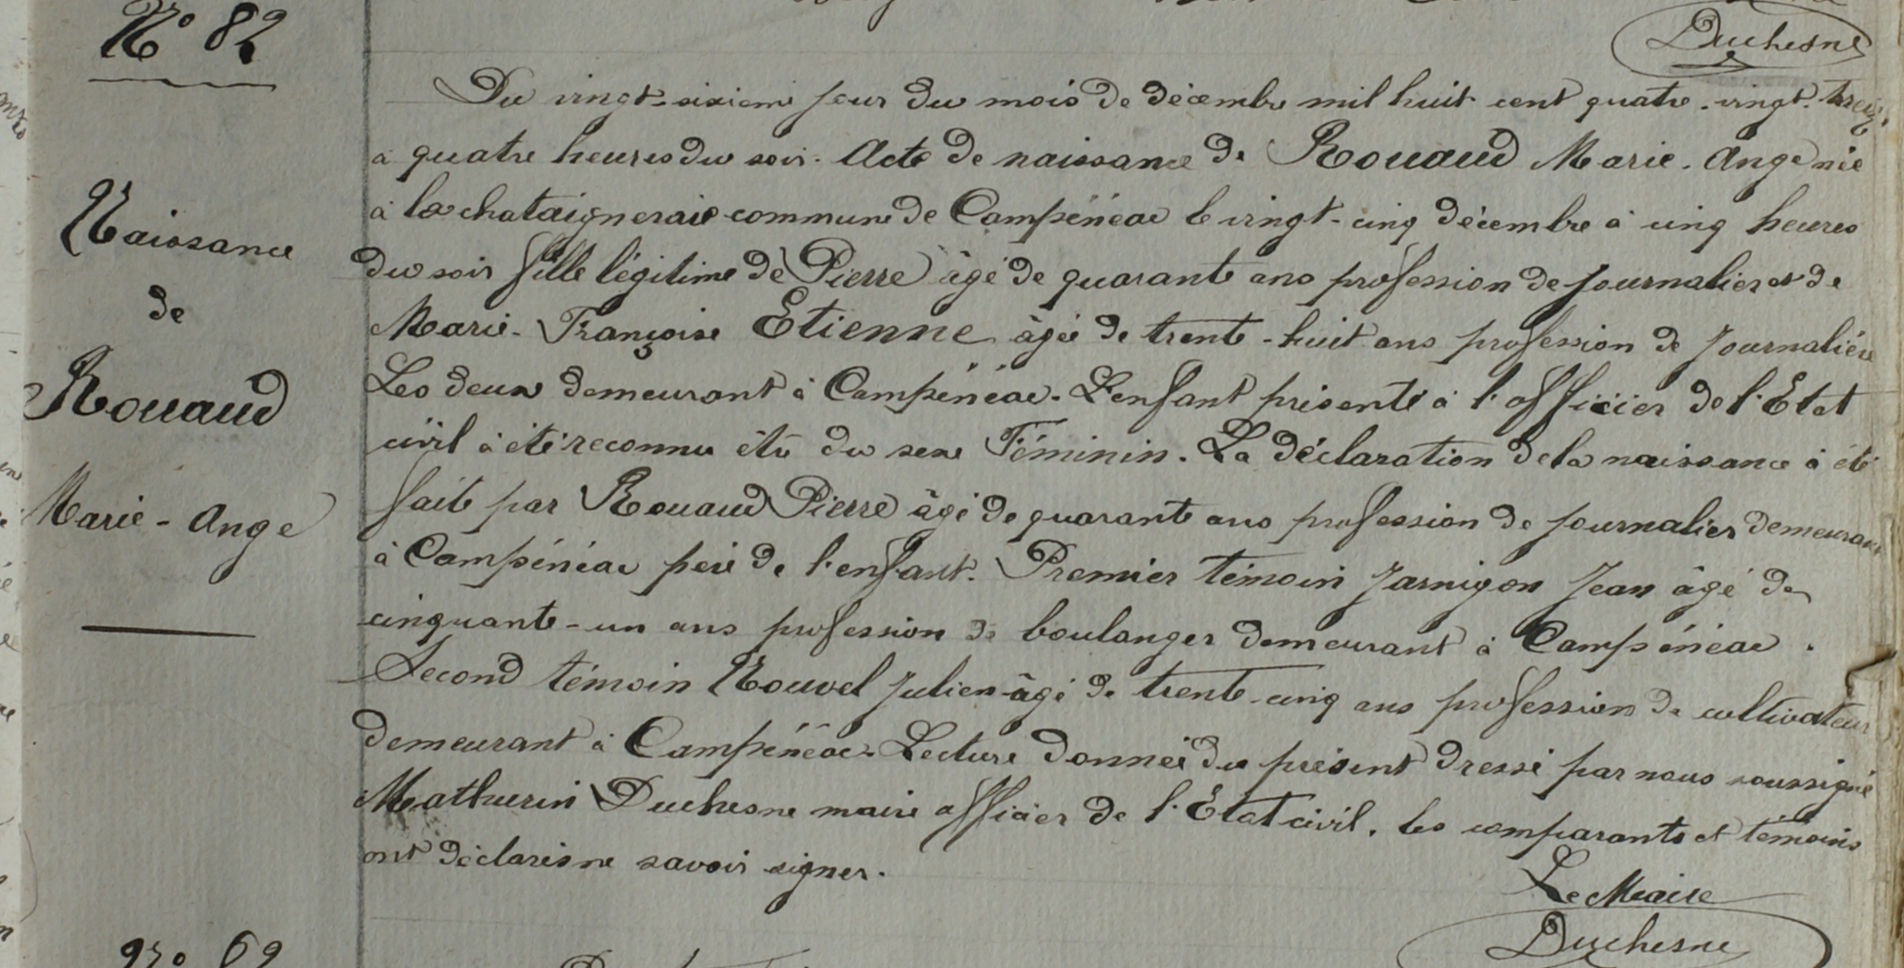 N° 82
Duchesne
Du vingt-sixieme jour du mois de décembre mil huit cent quatre-vingt-treize,
à quatre heures du soir. Acte de naissance de Rouaud Marie-Ange née
à la chataigneraie commune de Campénéac le vingt-cinq décembre à cinq heures
du soir fille légitime de Pierre âgé de quarante ans profession de journalier et de
Marie-Françoise Etienne âgée de trente-huit ans profession de journalière
Les deux demeurant à Campénéac. L'enfant présenté à l'officier de l'Etat
civil à été reconnu être du sexe Féminin. La déclaration de la naissance à été
faite par Rouaud Pierre âgé de quarante ans profession de journalier demeurant
à Campénéac père de l'enfant. Premier témoin Jarnigon Jean âgé de
cinquante-un ans profession de boulanger demeurant à Campénéac.
Second témoin Nouvel Julien âgé de trente-cinq ans profession de cultivateur
demeurant à Campénéac. Lecture donnée du présent dressé par nous soussigné
Mathurin Duchesne maire officier de l'Etat civil, les comparants et témoins
ont déclaré ne savoir signer.
Le Maire
Duchesne
Naissance
de
Rouaud
Marie-Ange
N° 69